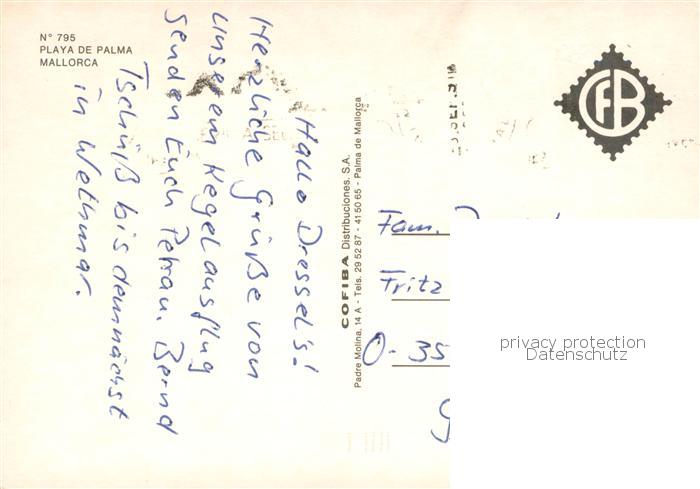 N° 795
PLAYA DE PALMA
MALLORCA
Hallo Dressel's!
Herzliche Grüße von
unserem Kegelausflug
senden Euch Petra u. Bernd
Tschüß bis demnächst
in Wethmar.
COFIBA Distribuciones, S.A.
Padre Molina, 14 A - Tels. 29 52 87 - 41 50 65 - Palma de Mallorca
CFB
Fam.
Fritz
O-35
privacy protection
Datenschutz